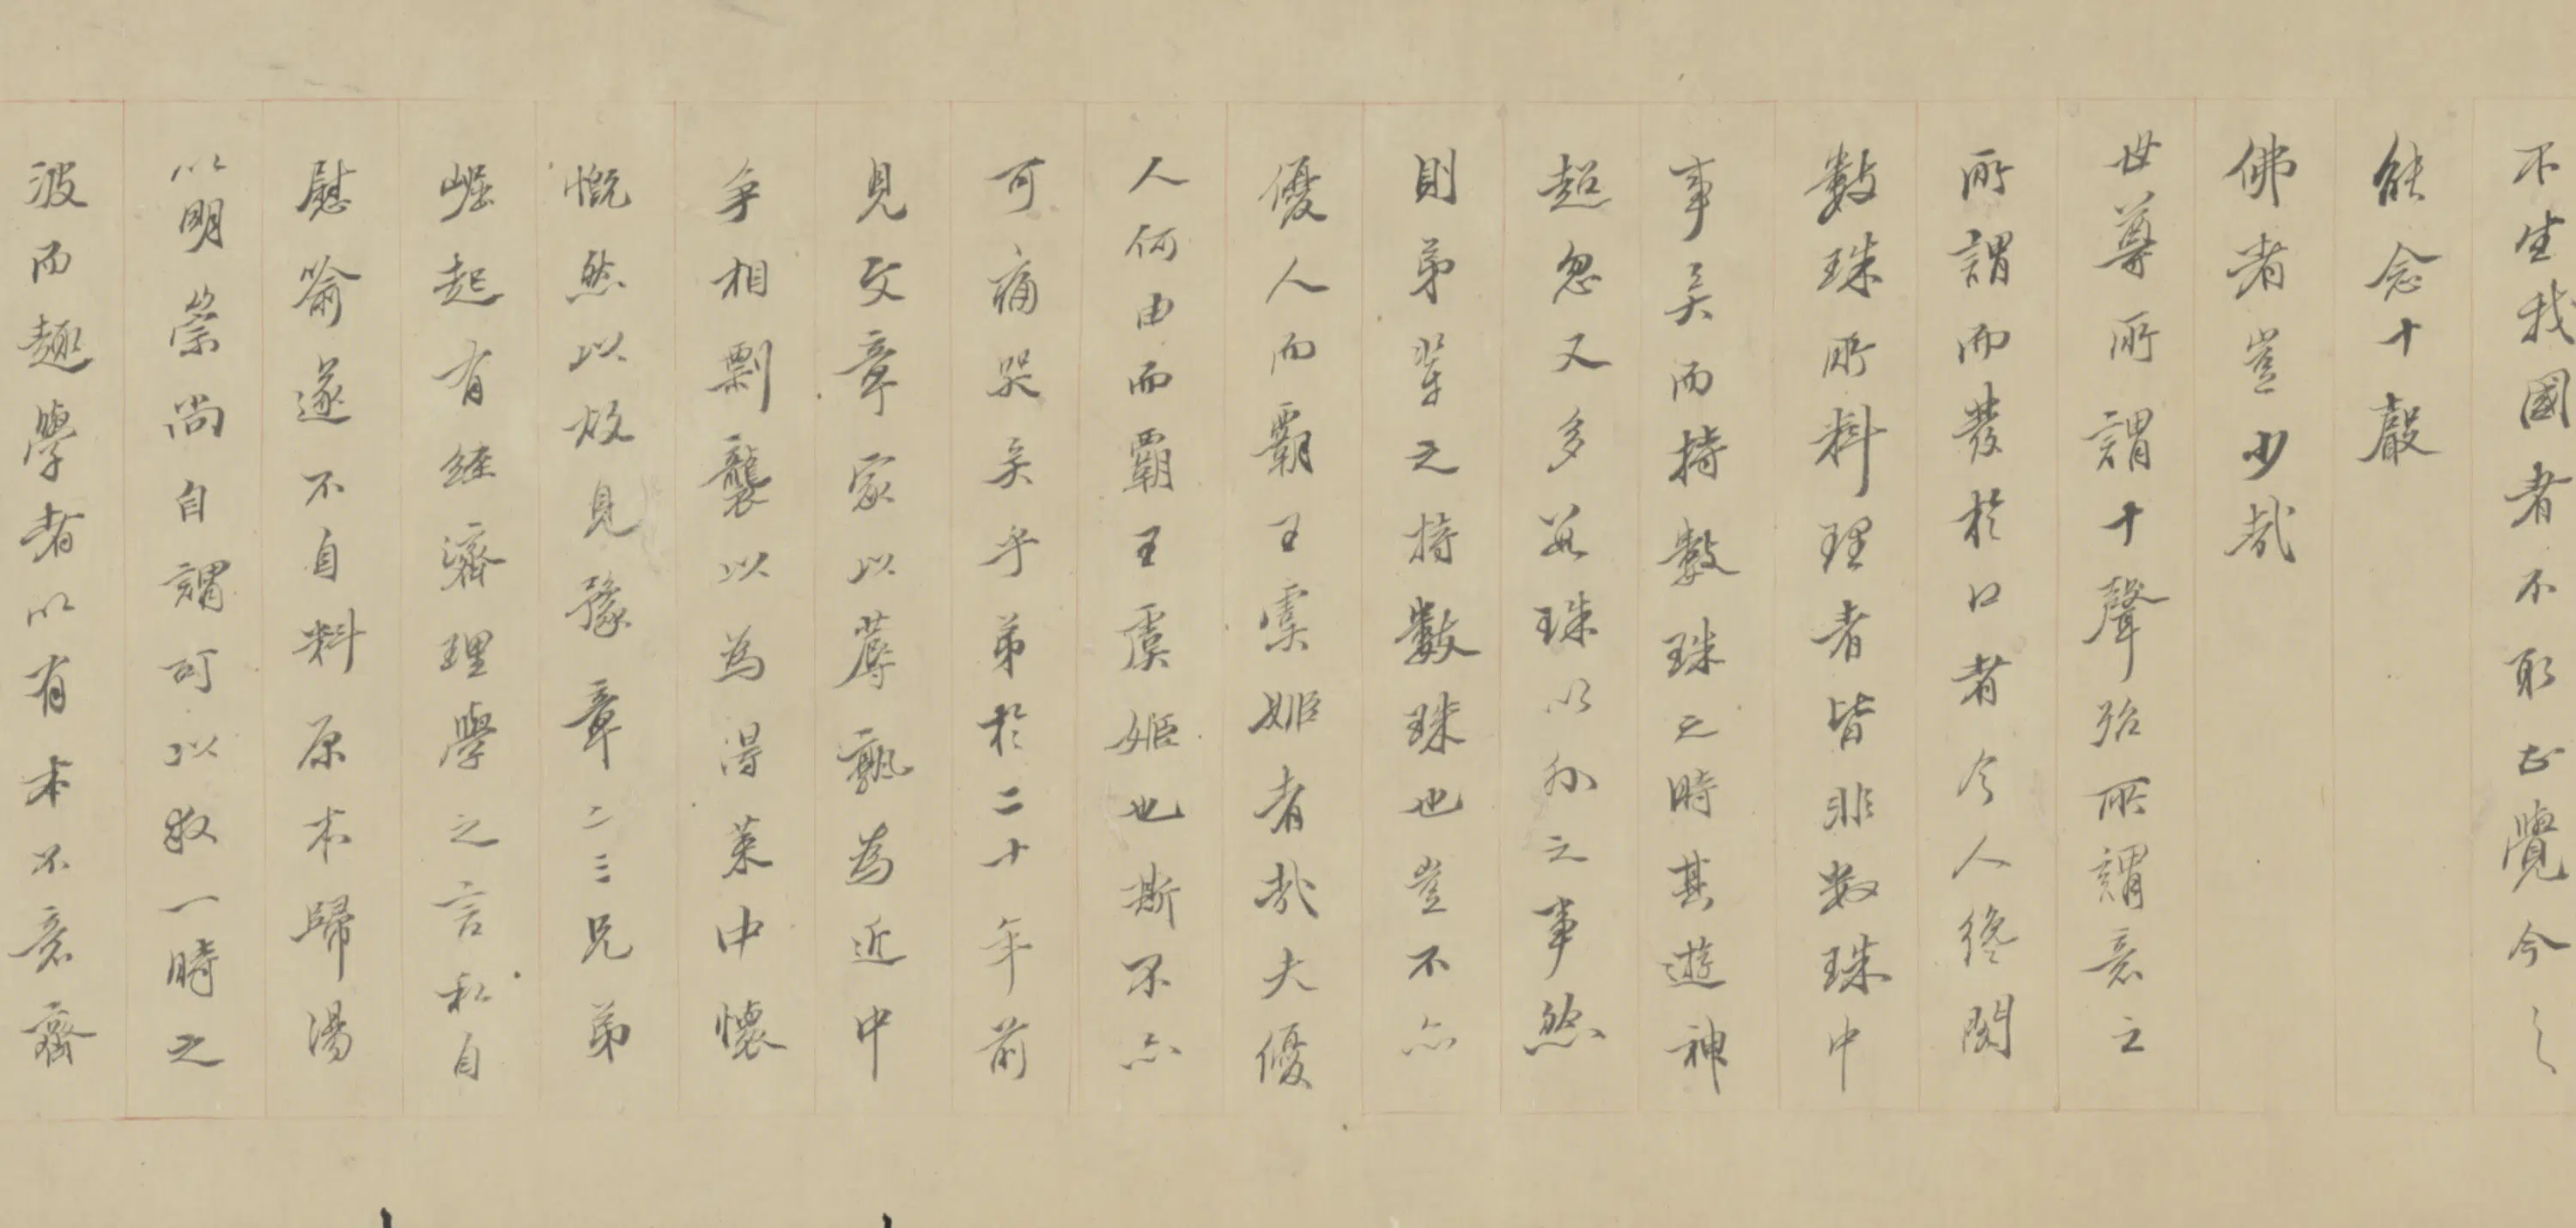 不生我國者不取正覺今之
能念十聲
佛者豈少哉
世尊所謂十聲殆所謂意之
所謂而發於口者今人終閱
數珠所料理者皆非数珠中
事矣而持數珠之時其遊神
超忽又多數珠以外之事然
則弟輩之持數珠也豈不亦
優人而霸王虞姬者哉夫優
人何由而霸王虞姬也斯不亦
可痛哭矣乎弟於二十年前
見文章家以蓐孰為近中
爭相剽襲以為得策中懷
慨然以放見豫章二三兄弟
崛起有經濟理學之言私自
慰喻遂不自料原本歸湯
以明崇尚自謂可以救一時之
波而趣學者以有本不意齊